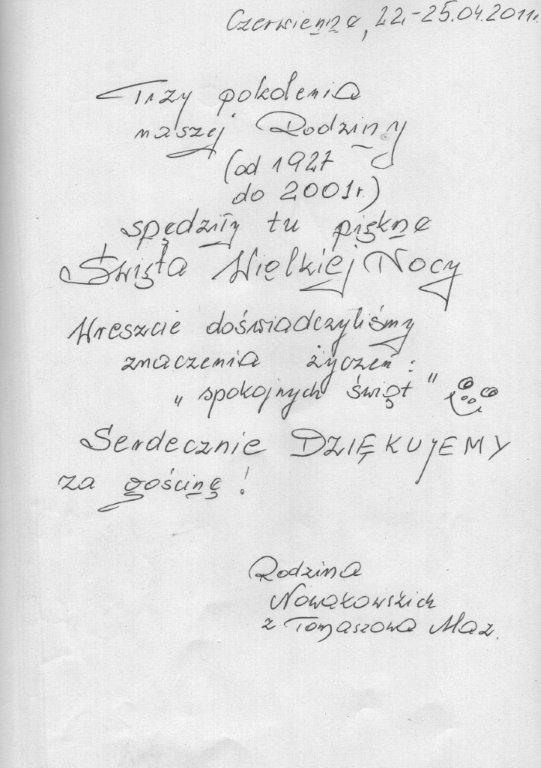 Czerwienne, 22.-25.04.2011r.
Trzy pokolenia
naszej Rodziny
(od 1927
do 2001r.)
spędziły tu piękne
Święta Wielkiej Nocy
Wreszcie doświadczyliśmy
znaczenia życzeń:
„spokojnych świąt”
Serdecznie DZIĘKUJEMY
za gościnę!
Rodzina
Nowakowskich
z Tomaszowa Maz.